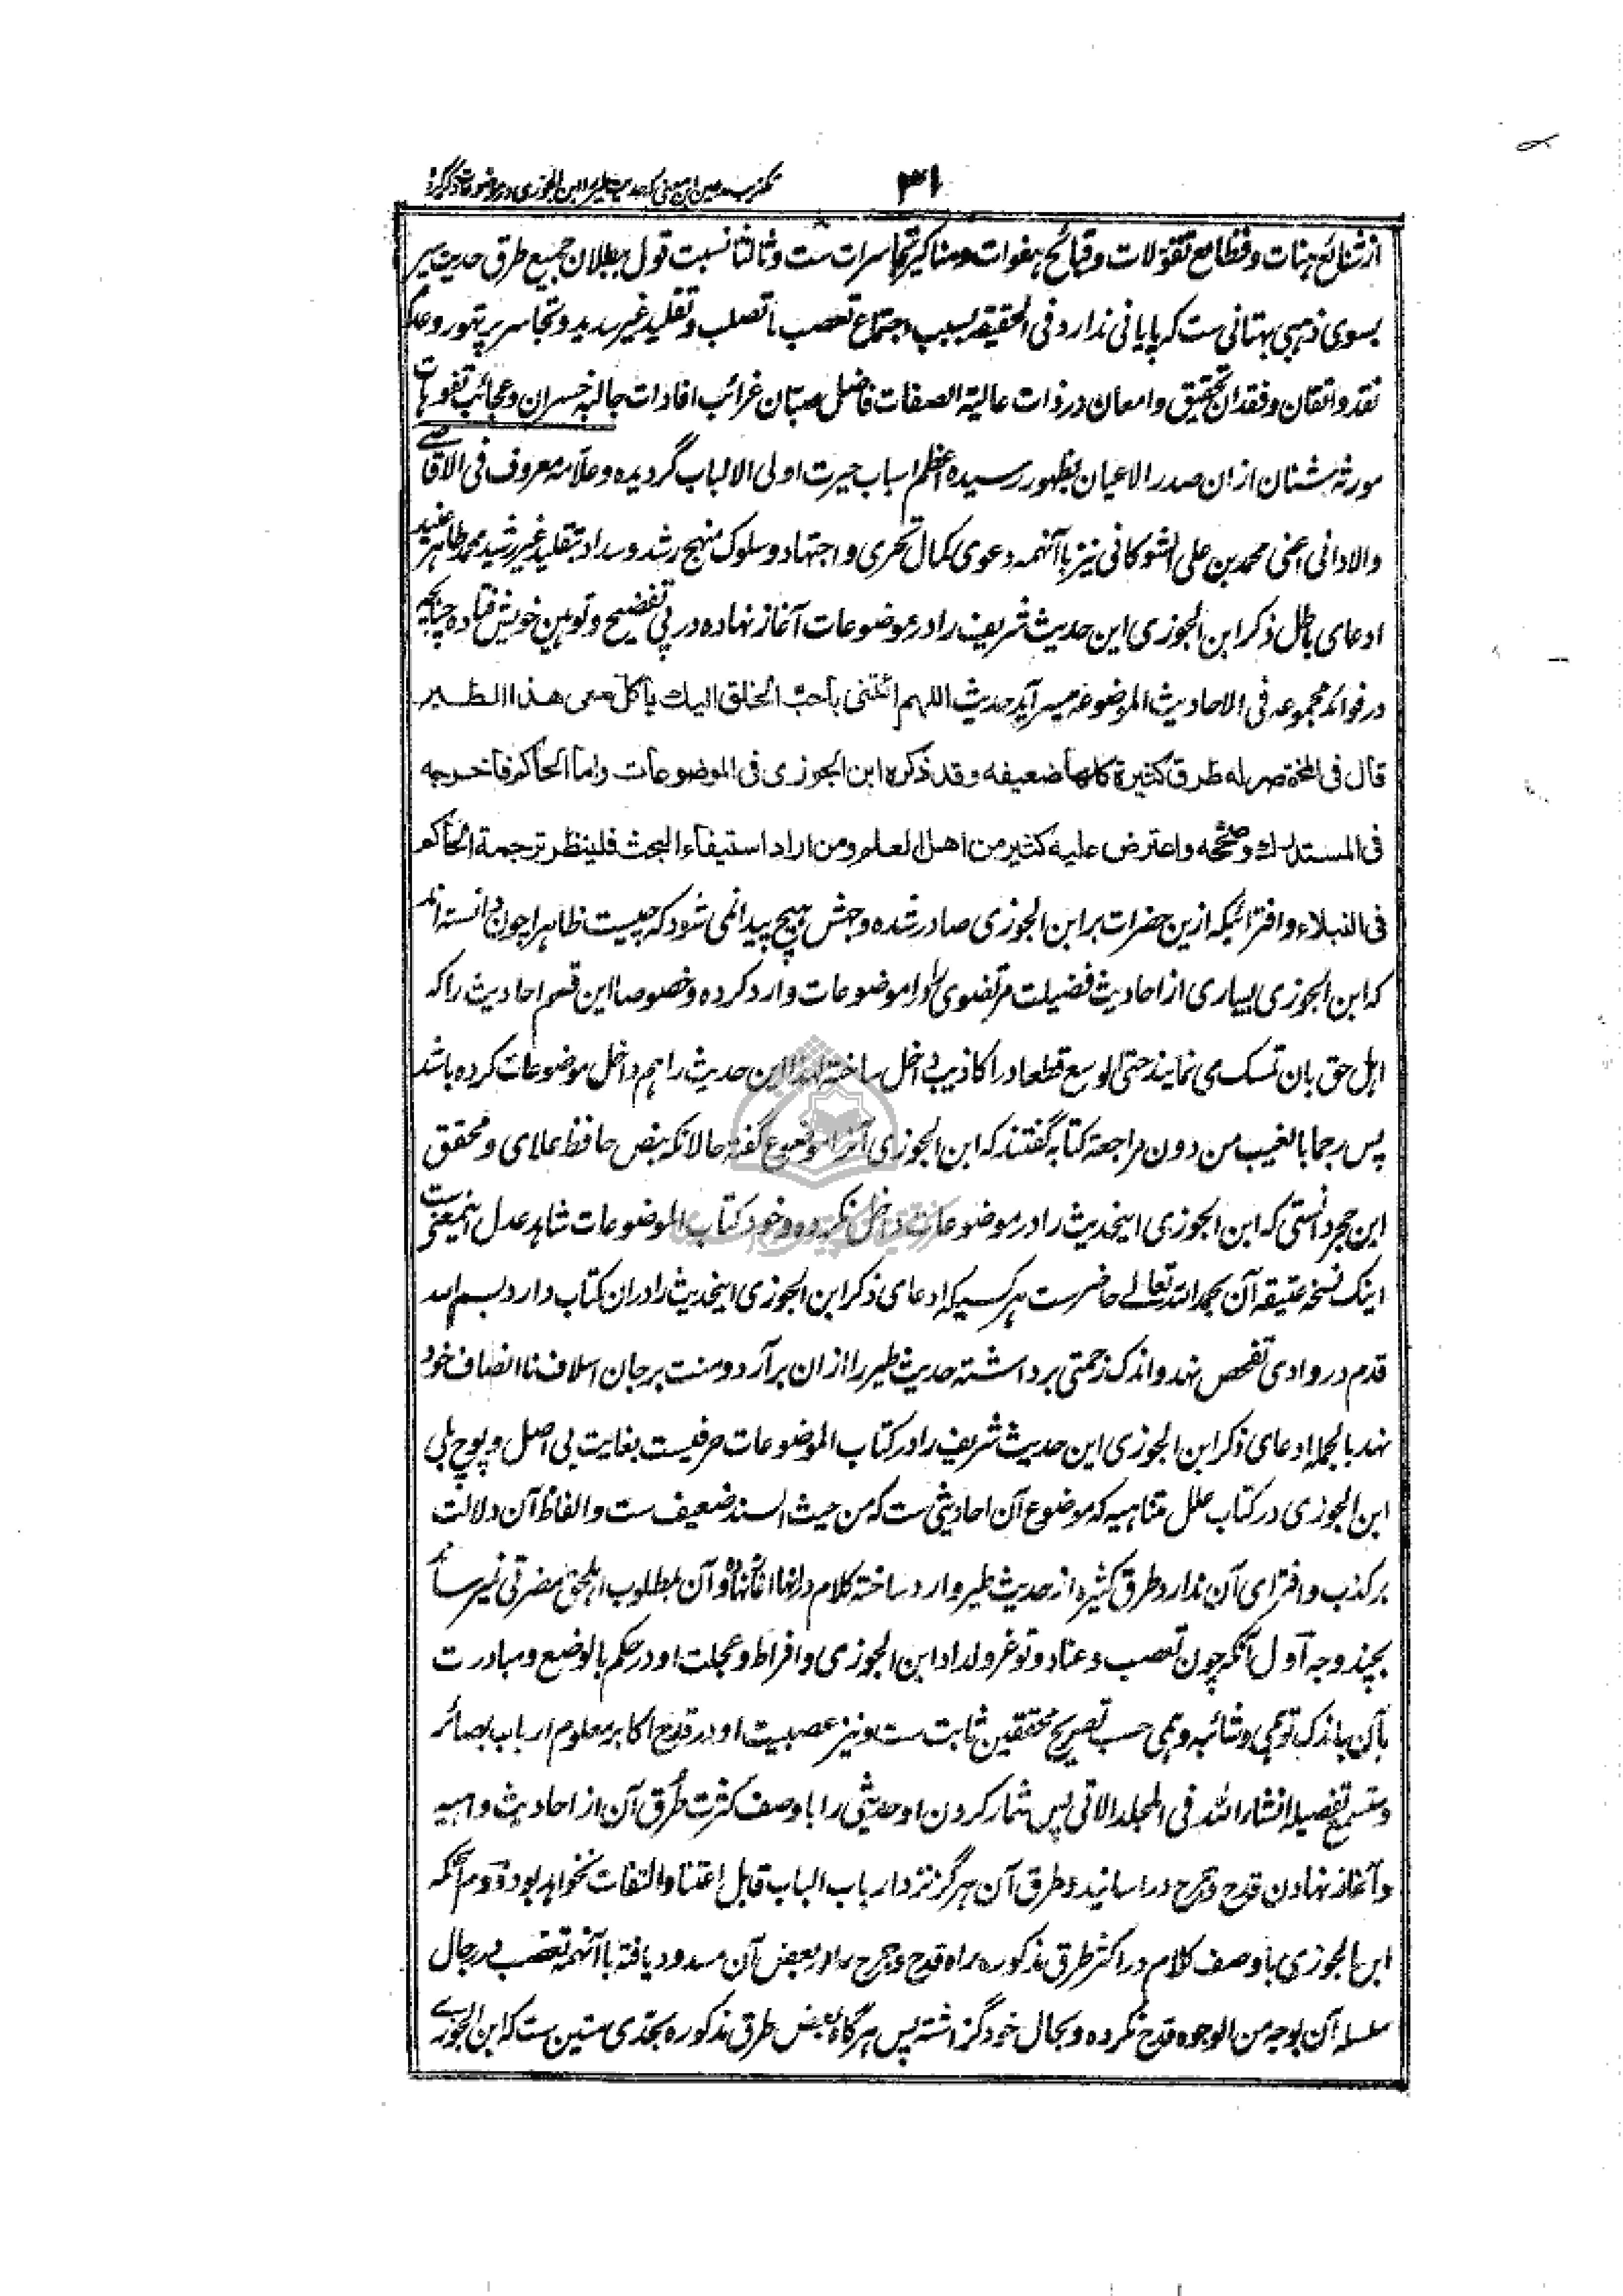 ۳۱
از شنائع هنات و فظائع تقولات و قبائح هفوات و مناکیر تجاسرات ست و ثالثا نسبت قول ببطلان جمیع طرق حدیث طیر
بسوی ذهبی بهتانی ست که پایانی ندارد و فی الحقیقة بسبب اجتماع تعصب با تصلب و تقلید غیر سدید و تجاسر پر تهور و عدم
نقد و اتقان و فقدان تحقیق و امعان در ذات عالیة الصفات فاضل صبان غرائب افادات جالبه خسران و عجائب تفوهات
مورثه شنان ازان صدر الاعیان بظهور رسیده اعظم اسباب حیرت اولی الالباب گردیده و علامه معروف فی الاقاصے
والادانی اعنی محمد بن علی الشوکانی نیز باآنهمه دعوی کمال تحری و اجتهاد و سلوک منهج رشد و سداد بتقلید غیر رشید محمد طاهر عنید
ادعای باطل ذکر ابن الجوزی این حدیث شریف را در موضوعات آغاز نهاده در پی تفضیح و توهین خویش فتاده چنانچه
در فوائد مجموعه فی الاحادیث الموضوعه میسراید حدیث اللهم ائتنی باحب الخلق الیك یاکل معی هذا الطیر
قال فی المختصر له طرق کثیرة کلها ضعیفه و قد ذکره ابن الجوزی فی الموضوعات واما الحاکم فاخرجه
فی المستدرك و صححه واعترض علیه کثیر من اهل العلم ومن اراد استیفاء البحث فلینظر ترجمة الحاکم
فی النبلاء و افترائیکه ازین حضرات بر ابن الجوزی صادر شده وجهش هیچ پیدا نمی شود که چیست ظاهرا چون دانسته اند
که ابن الجوزی بسیاری از احادیث فضیلت مرتضوی را در موضوعات وارد کرده و خصوصا این قسم احادیث را که
اهل حق بان تمسک می نمایند حتی الوسع قطعا در اکاذیب داخل ساخته لهذا این حدیث را هم داخل موضوعات کرده باشد
پس رجما بالغیب من دون مراجعة کتابه گفتند که ابن الجوزی آنرا موضوع گفته حالانکه بنص حافظ علای و محقق
ابن حجر دانستی که ابن الجوزی اینحدیث را در موضوعات داخل نکرده و خود کتاب الموضوعات شاهد عدل اینمعنی ست
اینک نسخه عتیقه آن بحمد الله تعالے حاضرست هر کسیکه ادعای ذکر ابن الجوزی اینحدیث را دران کتاب دارد بسم الله
قدم در وادی تفحص نهد و اندک زحمتی برداشته حدیث طیر را ازان برآرد و منت بر جان اسلاف ناانصاف خود
نهد بالجمله ادعای ذکر ابن الجوزی این حدیث شریف را در کتاب الموضوعات حرفیست بغایت بی اصل و پوچ بلی
ابن الجوزی در کتاب علل متناهیه که موضوع آن احادیثی ست که من حیث السند ضعیف ست و الفاظ آن دلالت
بر کذب و افترای آن ندارد طرق کثیره از حدیث طیر وارد ساخته کلام درانها آغاز نهاده و آن بمطلوب اهلحق مضرتی نمیرساند
بچند وجه اول آنکه چون تعصب و عناد و توغر و لداد ابن الجوزی و افراط و عجلت او در حکم بالوضع و مبادرت
بآن باندک توهمی و شائبه وهمی حسب تصریح محققین ثابت ست و نیز عصبیت او در قدح اکابر معلوم ارباب بصائر
وستسمع تفصیله انشاء الله فی المجلد الاتی پس شمار کردن او حدیثی را باوصف کثرت طرق آن از احادیث واهیه
و آغاز نهادن قدح و جرح در اسانید و طرق آن هرگز نزد ارباب الباب قابل اعتنا و التفات نخواهد بود دوم آنکه
ابن الجوزی باوصف کلام در اکثر طرق مذکوره راه قدح و جرح را در بعض آن مسدود یافته باآنهمه تعصب در رجال
سلسله آن بوجه من الوجوه قدح نکرده و بحال خود گزاشته پس هرگاه بعض طرق مذکوره بحدی متین ست که ابن الجوزے